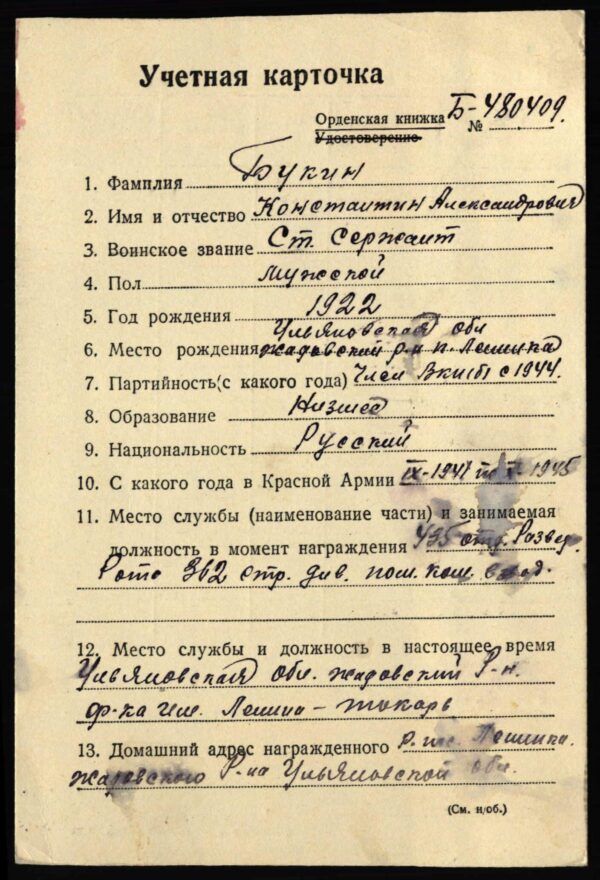 Учетная карточка
Орденская книжка Б-480409.
Удостоверение №
1. Фамлия Букин
2. Имя и отчество Константин Александрович
3. Воинское звание Ст. Сержант
4. Пол Мужской
5. Год рождения 1922
Ульяновская обл
6. Место рождения жадовский р-н п. Ленина
7. Партийность(с какого года) Член Вкп(б) с 1944.
8. Образование Низшее
9. Национальность Русский
10. С какого года в Красной Армии IX-1941 по X-1945
11. Место службы (наименование части) и занимаемая
должность в момент награждения 435 отд. Развед.
Рота 362 стр. див. пом. ком. взвод.
12. Место службы и должность в настоящее время
Ульяновская обл. жадовский Р-н.
ф-ка им. Ленина - токарь
13. Домашний адрес награжденного
жадовского Р-на Ульяновской обл.
(См. н/об.)